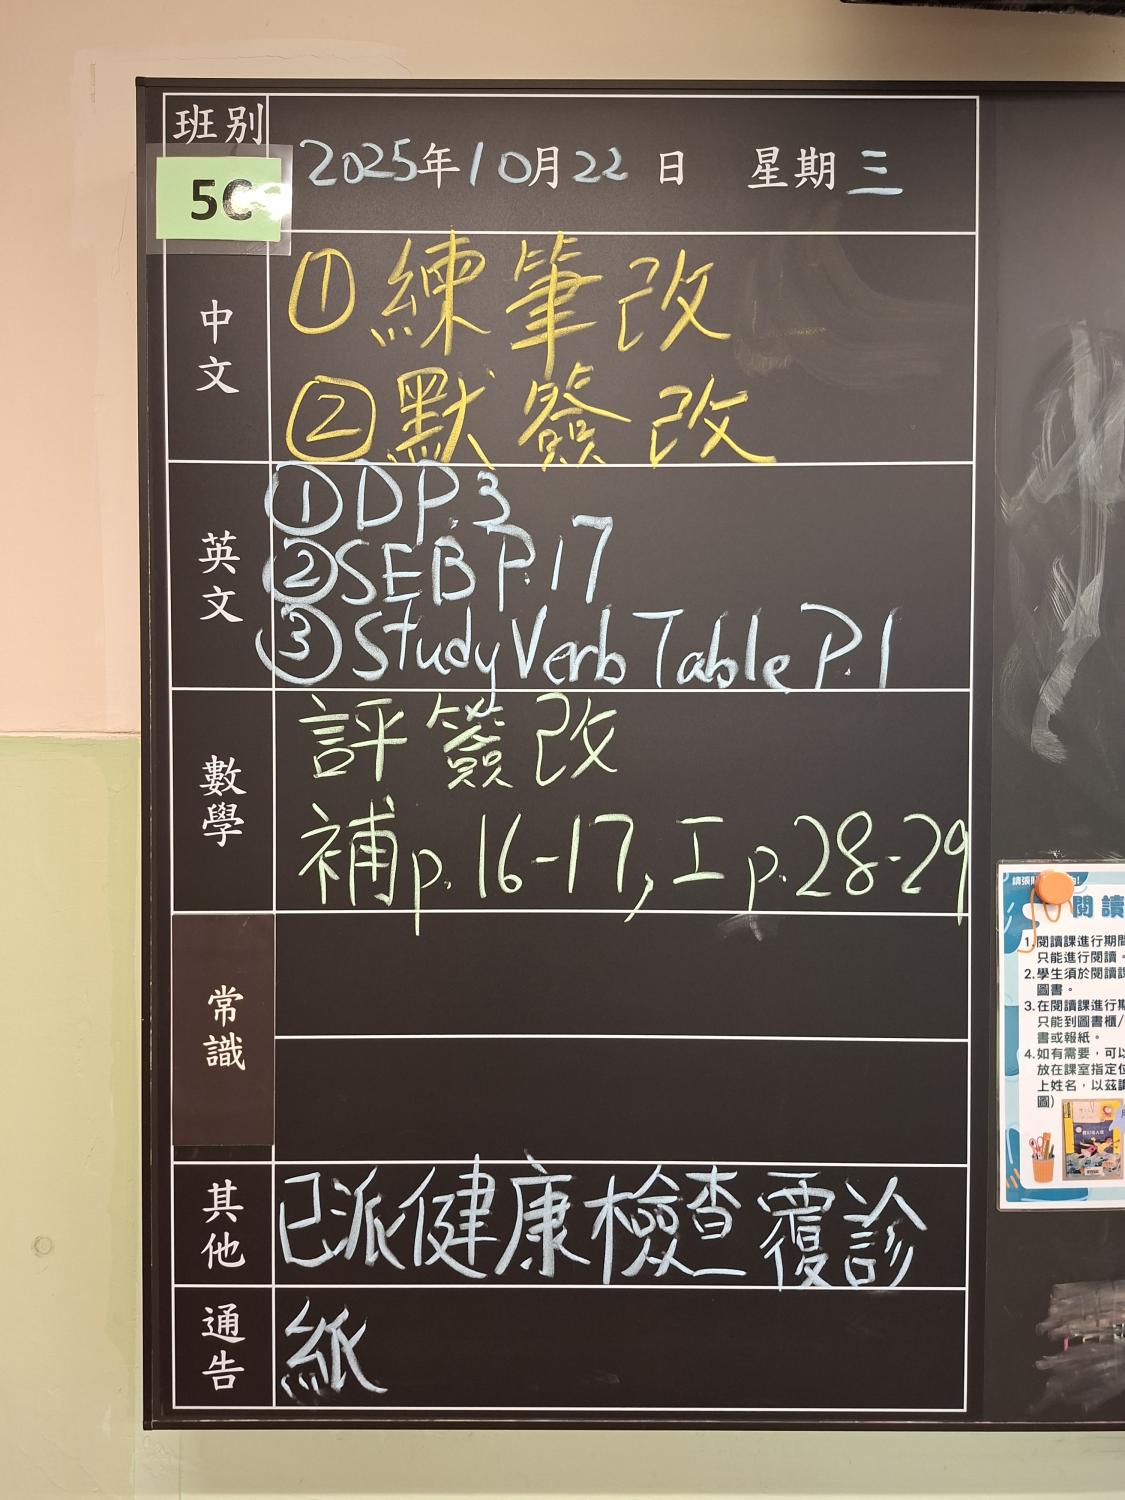 班別
5C
2025年10月22日 星期三
中文
①練筆改
②默簽改
英文
①DP.3
②SEB P.17
③Study Verb Table P.1
數學
評簽改
補p.16-17, 工p.28-29
常識
其他
已派健康檢查覆診
通告
紙
閱讀
1.閱讀課進行期間
只能進行閱讀。
2.學生須於閱讀課
圖書。
3.在閱讀課進行期
只能到圖書櫃/
書或報紙。
4.如有需要，可以
放在課室指定位
上姓名，以茲識
圖)